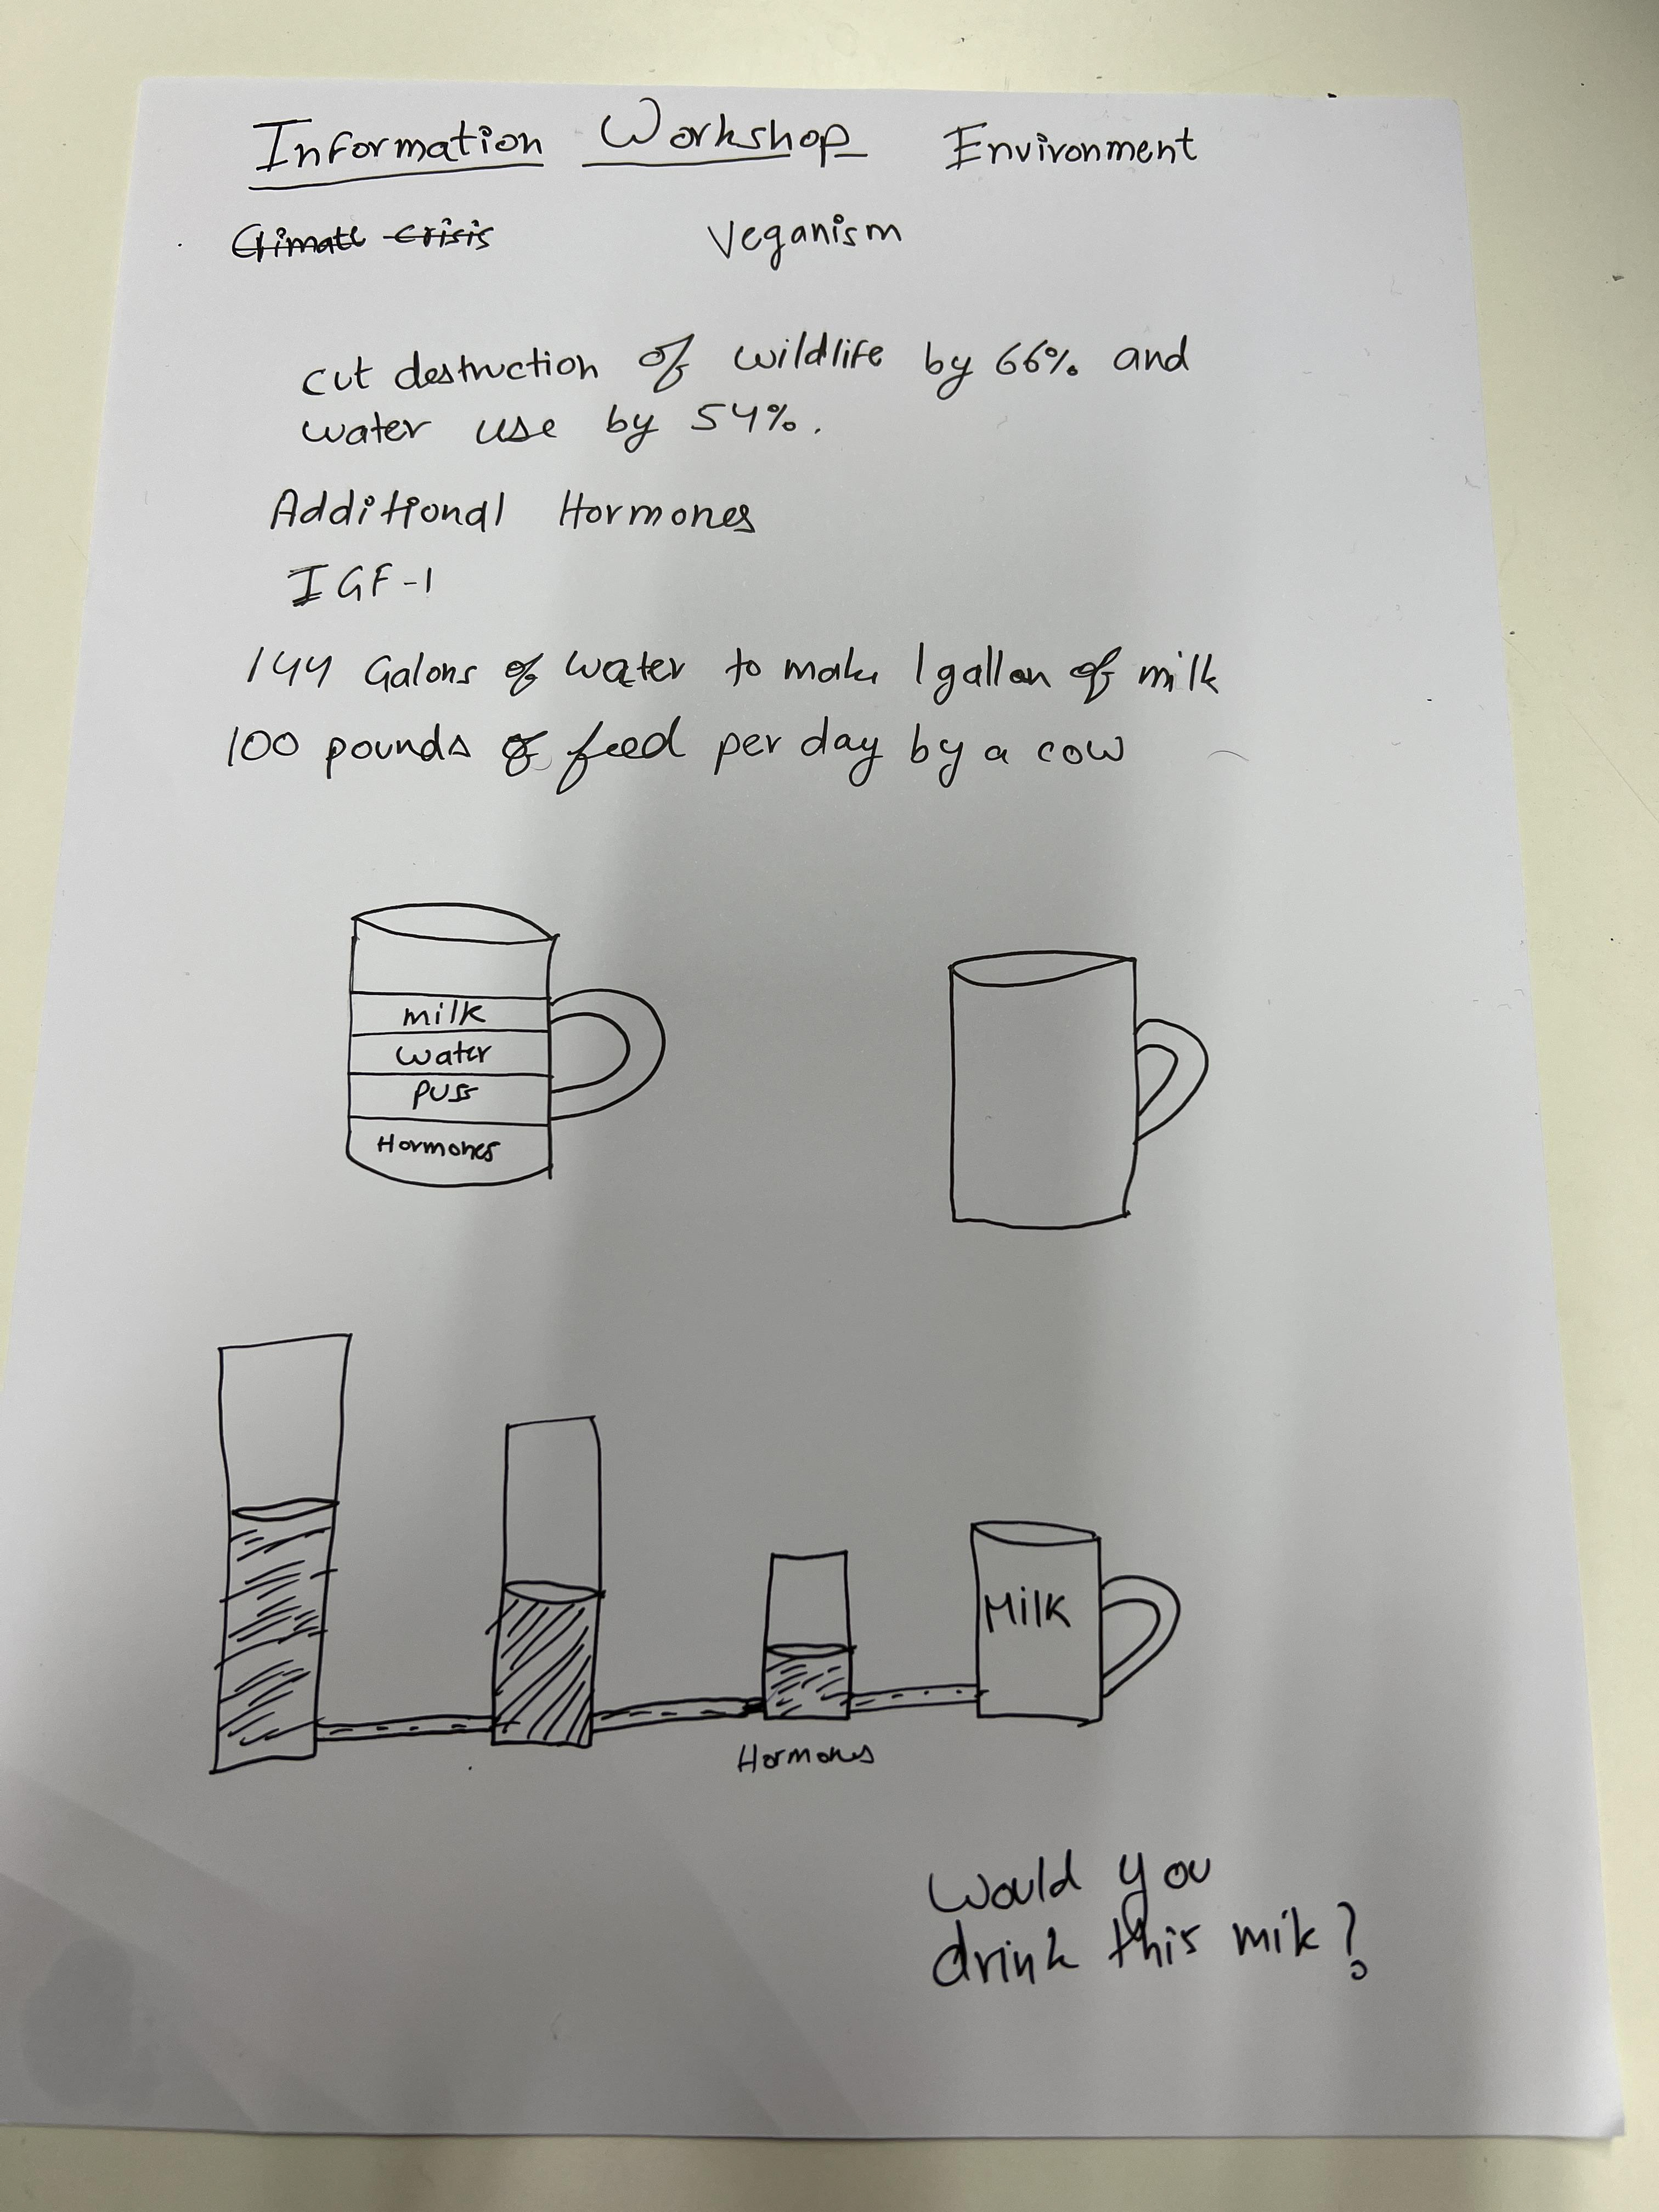 Information Workshop Environment
Climate Crisis Veganism
cut destruction of wildlife by 66% and
water use by 54%.
Additional Hormones
IGF-1
144 Galons of water to make 1 gallon of milk
100 pounds of feed per day by a cow
milk
water
puss
Hormones
Milk
Hormones
Would you
drink this mik?